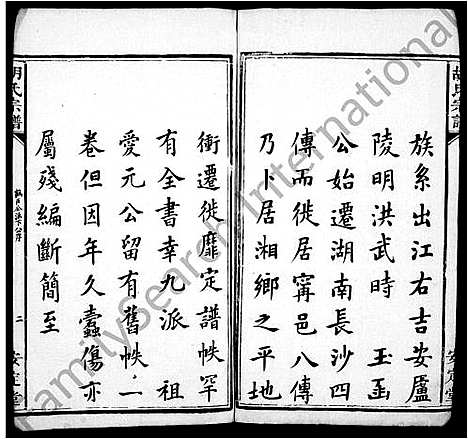 胡氏宗譜
族系出江右吉安廬
陵明洪武時　玉函
公始遷湖南長沙四
傳而徙居甯邑八傳
乃卜居湘鄉之平地
安定堂
衝遷徙靡定譜帙罕
有全書幸九派　祖
愛元公留有舊帙一
卷但因年久蠹傷亦
屬殘編斷簡至
胡氏宗譜
二
安定堂
FamilySearch International